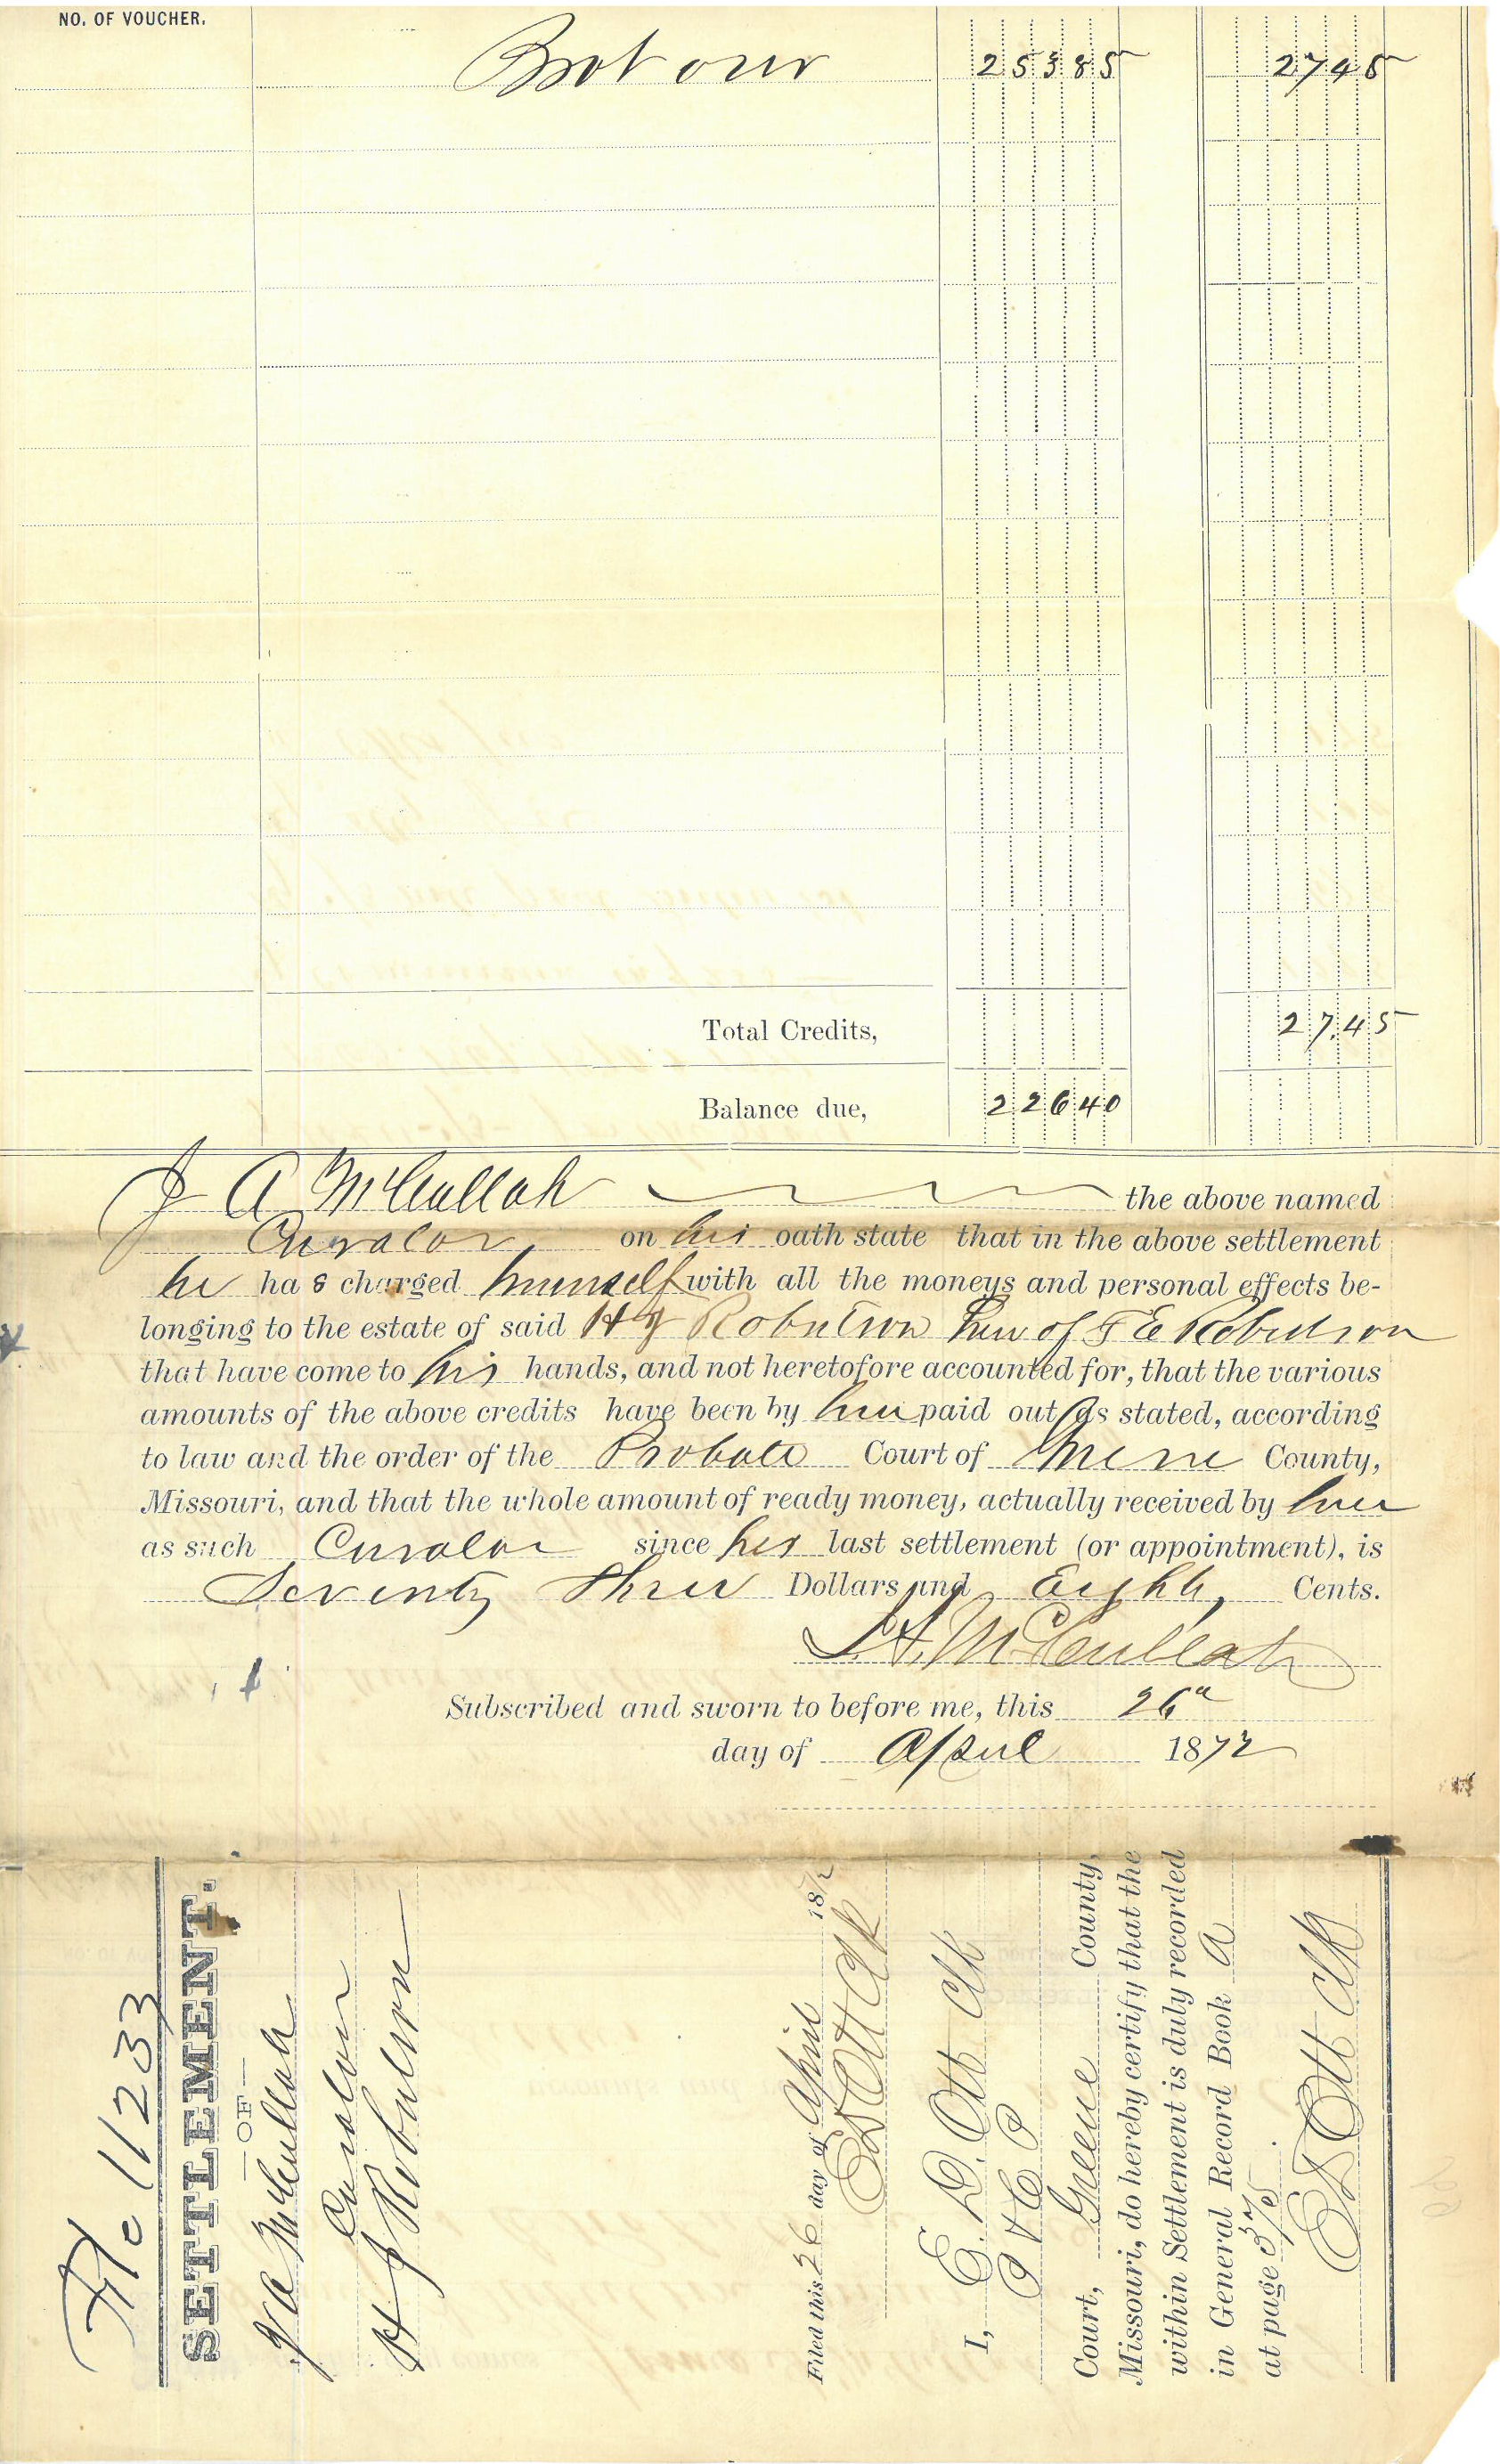 NO. OF VOUCHER.
Brot over 253 85 27 45
Total Credits, 27.45
Balance due, 226 40
J A McCullah the above named
Curator on his oath state that in the above settlement
he has charged himself with all the moneys and personal effects be-
longing to the estate of said H J Robertson heir of F E Robertson
that have come to his hands, and not heretofore accounted for, that the various
amounts of the above credits have been by him paid out as stated, according
to law and the order of the Probate Court of Greene County,
Missouri, and that the whole amount of ready money, actually received by him
as such Curator since his last settlement (or appointment), is
Seventy three Dollars and Eight Cents.
J. A. McCullah
Subscribed and sworn to before me, this 26th
day of April 1872
File 11233
SETTLEMENT.
—OF—
J A McCullah
Curator
H J Robertson
Filed this 26 day of April 1872
E D Ott Clk
I, E. D. Ott Clk
Court, Greene County,
Missouri, do hereby certify that the
within Settlement is duly recorded
in General Record Book A
at page 375.
E D Ott Clk